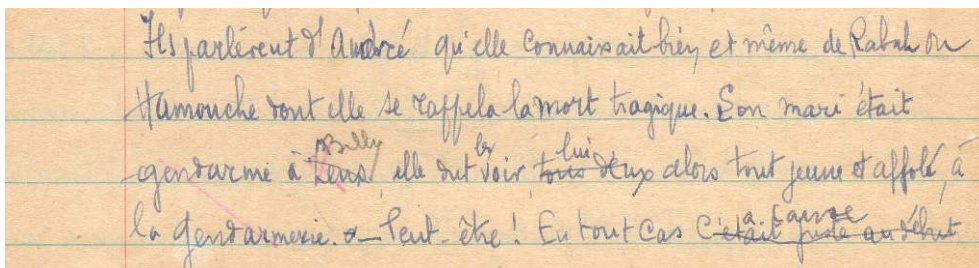 Ils parlèrent d'André qu'elle connaissait bien et même de Rabah ou
Hamouche dont elle se rappela la mort tragique. Son mari était
Billy les lui
gendarme à Lens elle dut voir tous deux alors tout jeune et affolé, à
a cause
la gendarmerie. — Peut-être ! En tout cas c'était juste au début